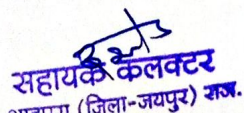 सहायक कलक्टर
(जिला-जयपुर) राज.